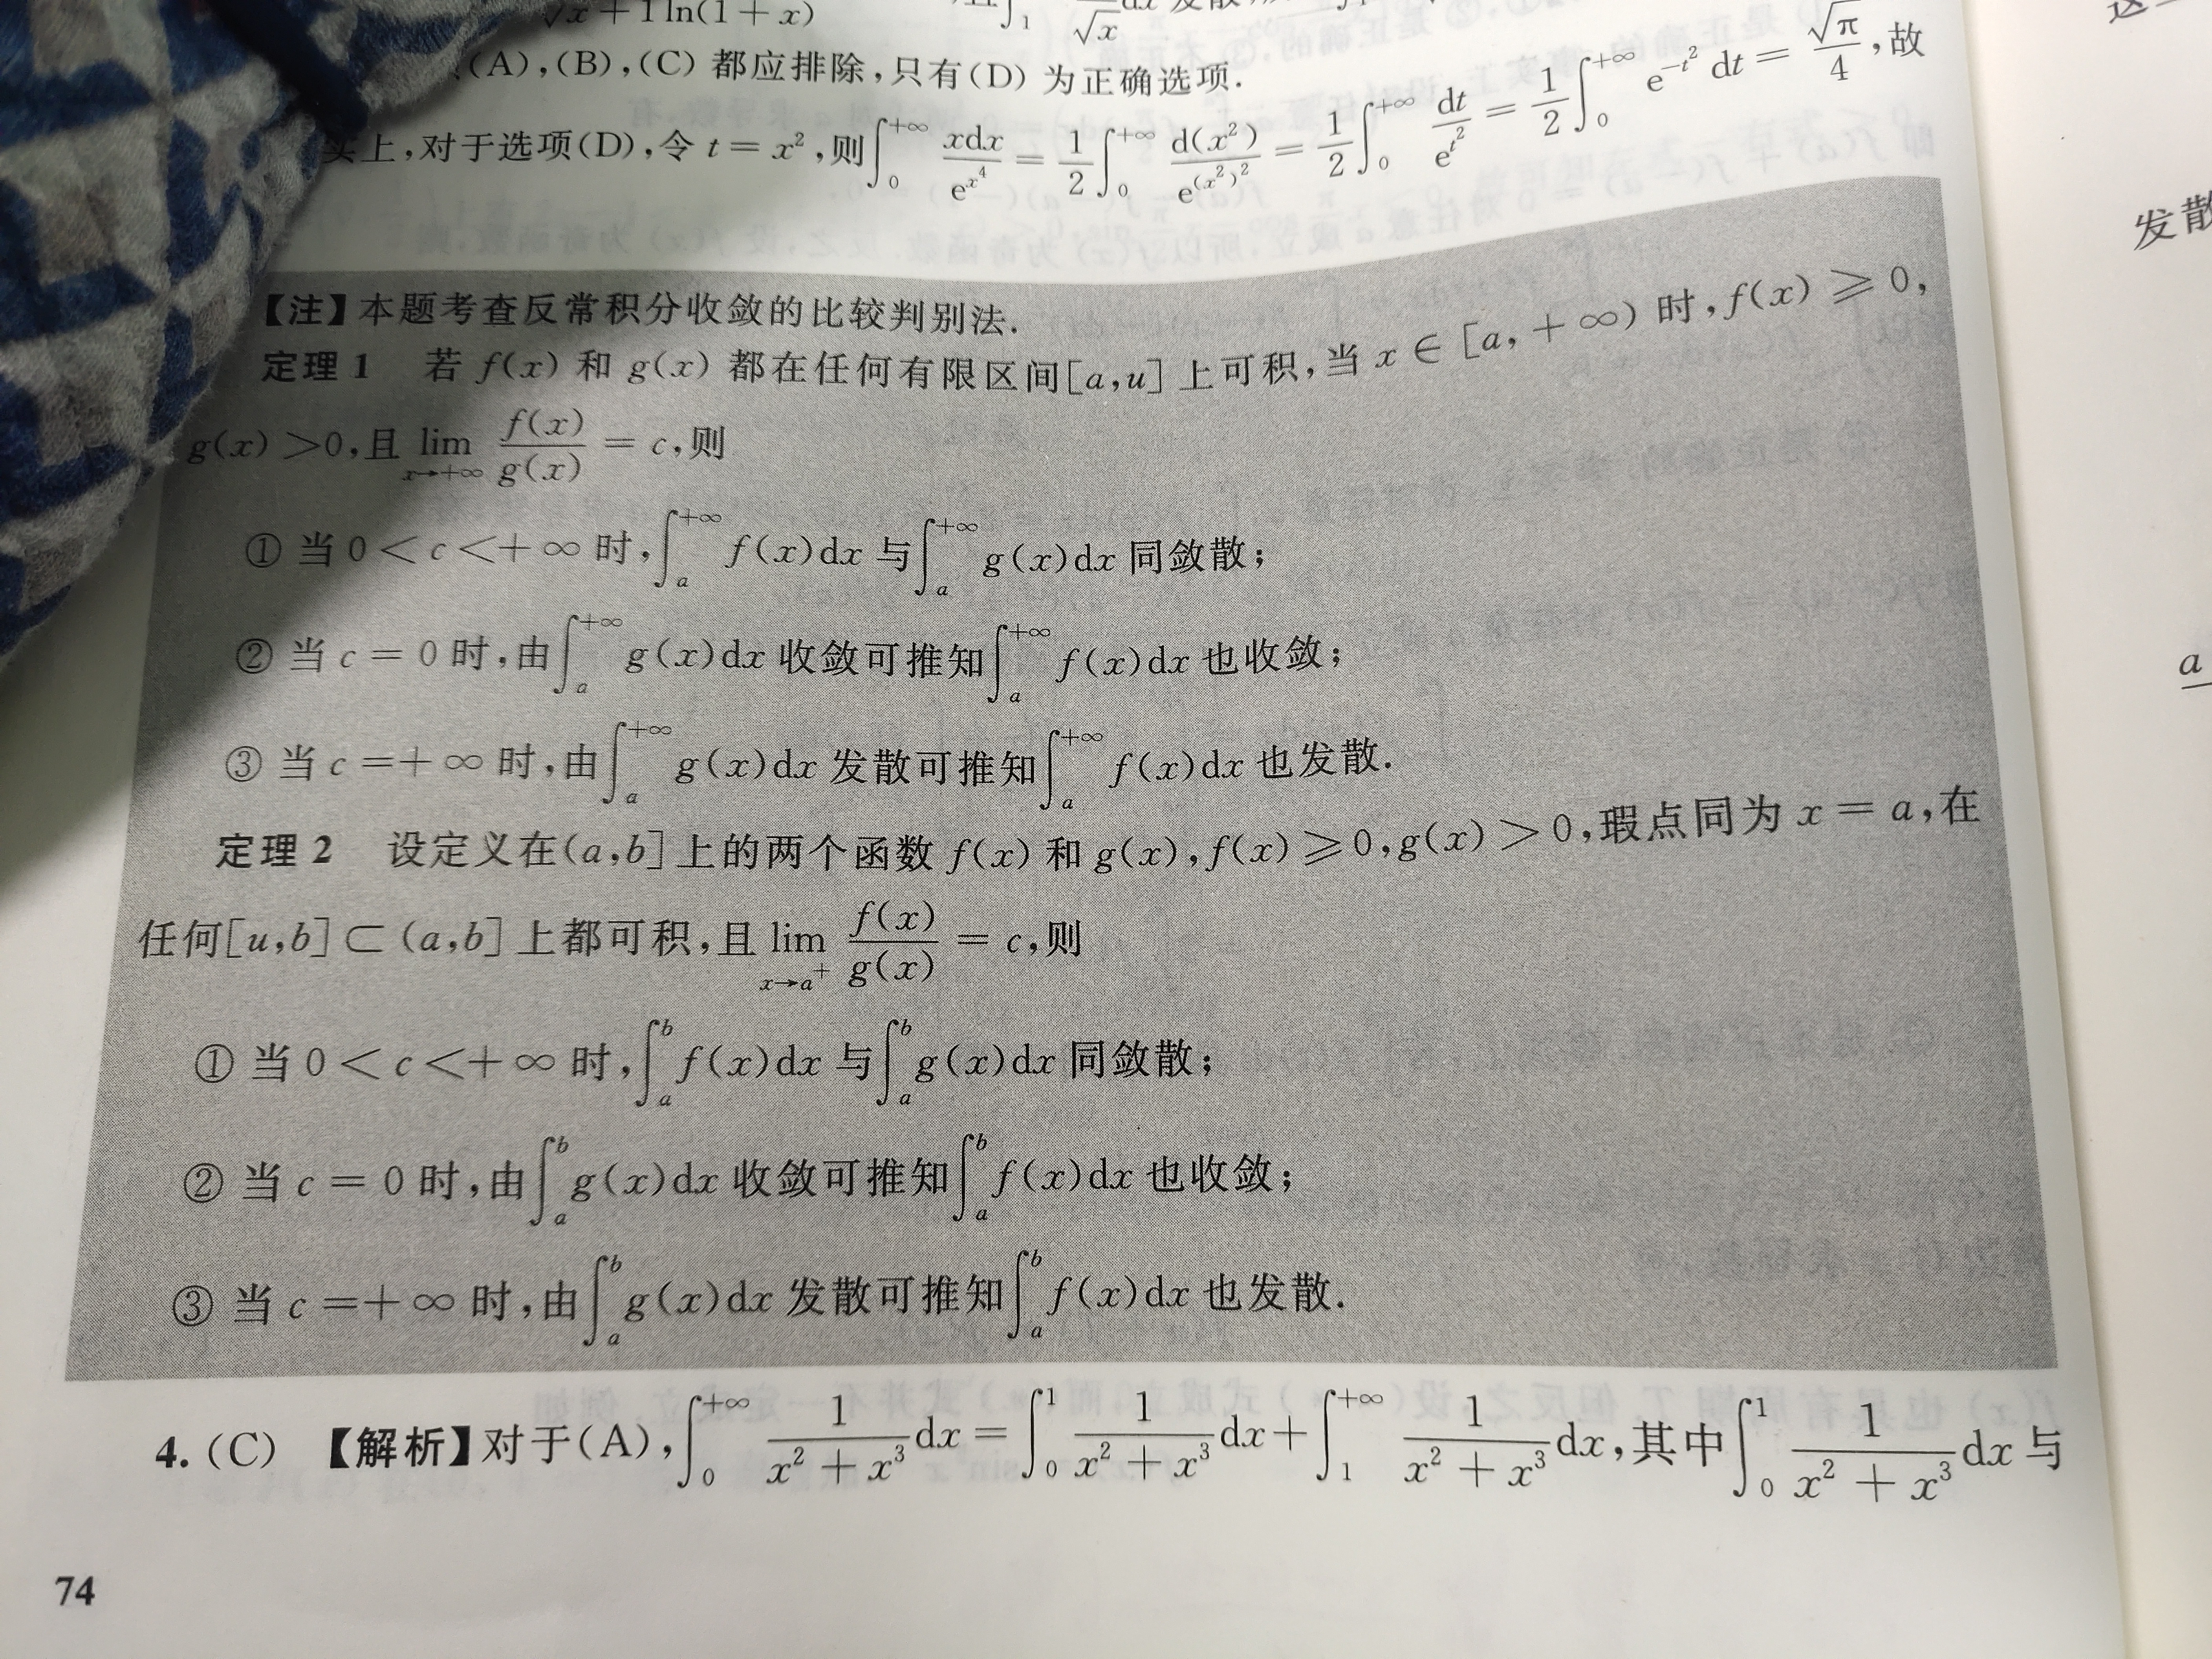 √x+1 ln(1+x)
(A),(B),(C) 都应排除,只有(D) 为正确选项.
上,对于选项(D),令 t = x²,则∫₀^{+∞} xdx/e^{x⁴} = 1/2 ∫₀^{+∞} d(x²)/e^{(x²)²} = 1/2 ∫₀^{+∞} dt/e^{t²} = 1/2 ∫₀^{+∞} e^{-t²} dt = √π/4,故
【注】本题考查反常积分收敛的比较判别法.
定理 1 若 f(x) 和 g(x) 都在任何有限区间[a,u] 上可积,当 x ∈ [a,+∞) 时,f(x) ⩾ 0,
g(x) >0,且 lim_{x→+∞} f(x)/g(x) = c,则
① 当 0 < c <+∞ 时,∫ₐ^{+∞} f(x)dx 与∫ₐ^{+∞} g(x)dx 同敛散;
② 当 c = 0 时,由∫ₐ^{+∞} g(x)dx 收敛可推知∫ₐ^{+∞} f(x)dx 也收敛;
③ 当 c =+∞ 时,由∫ₐ^{+∞} g(x)dx 发散可推知∫ₐ^{+∞} f(x)dx 也发散.
定理 2 设定义在(a,b] 上的两个函数 f(x) 和 g(x),f(x) ⩾ 0,g(x) > 0,瑕点同为 x = a,在
任何[u,b] ⊂ (a,b] 上都可积,且 lim_{x→a⁺} f(x)/g(x) = c,则
① 当 0 < c <+∞ 时,∫ₐ^b f(x)dx 与∫ₐ^b g(x)dx 同敛散;
② 当 c = 0 时,由∫ₐ^b g(x)dx 收敛可推知∫ₐ^b f(x)dx 也收敛;
③ 当 c =+∞ 时,由∫ₐ^b g(x)dx 发散可推知∫ₐ^b f(x)dx 也发散.
4. (C) 【解析】对于(A),∫₀^{+∞} 1/(x²+x³) dx = ∫₀^1 1/(x²+x³) dx + ∫₁^{+∞} 1/(x²+x³) dx,其中∫₀^1 1/(x²+x³) dx 与
74
发散
a